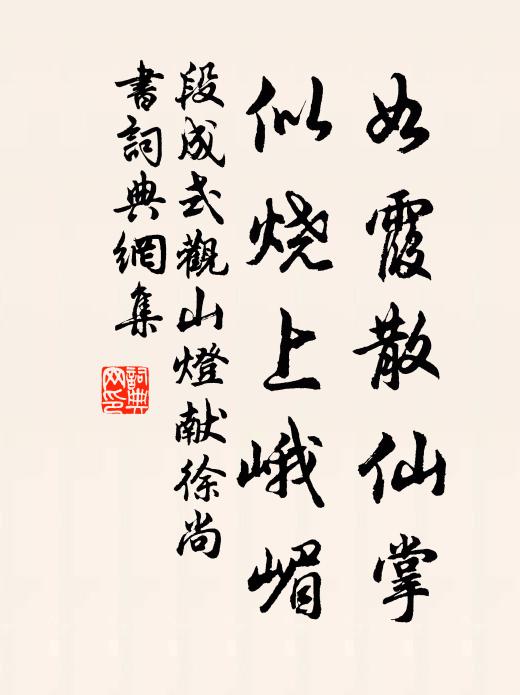 如霞散仙掌
似烧上峨嵋
段成式觀山燈献徐尚
書詞典網集
詞典網印